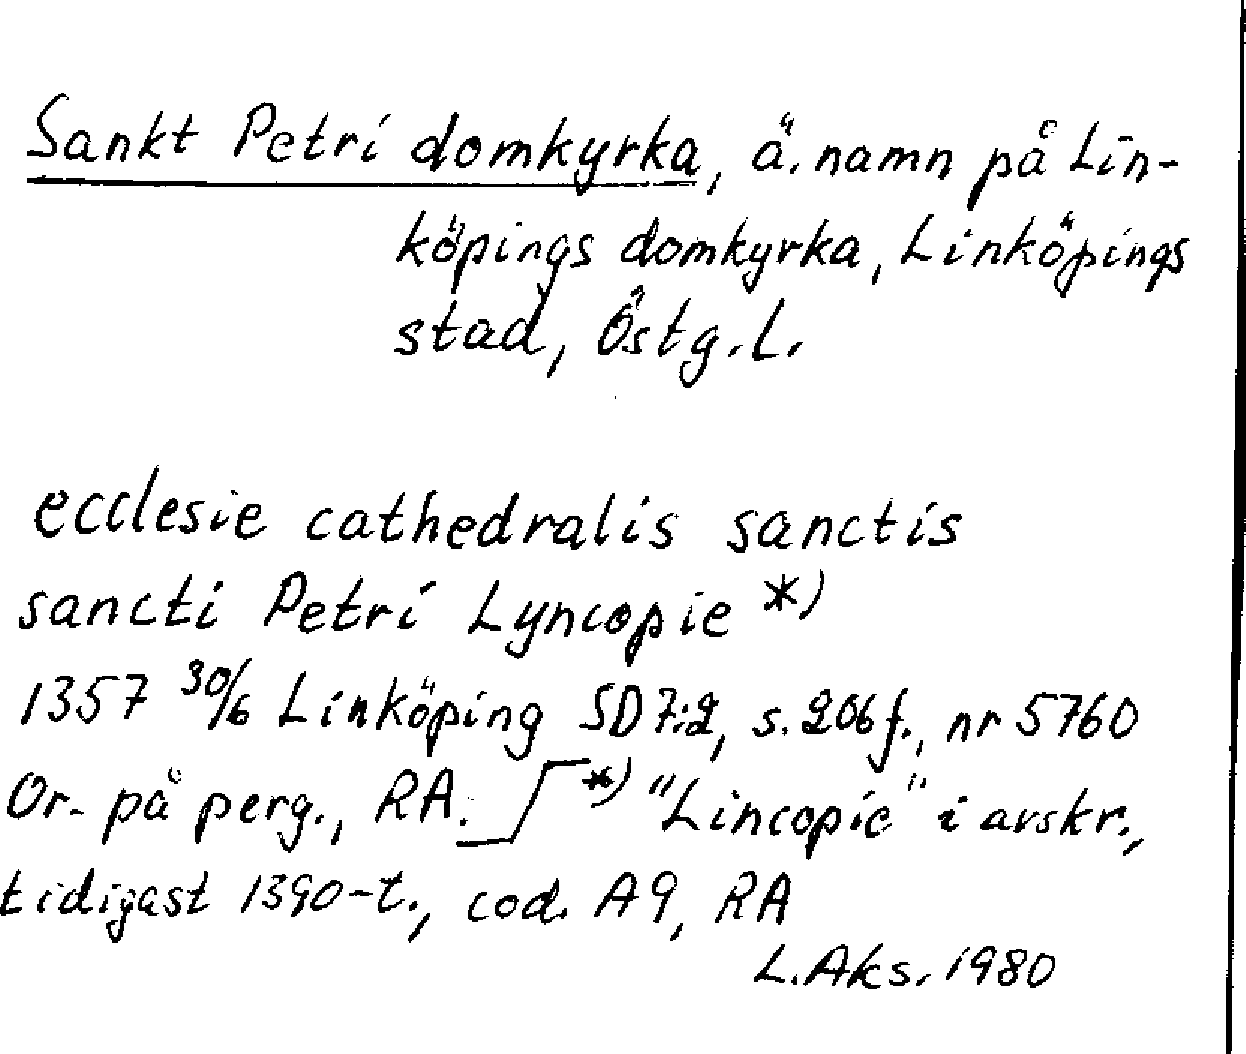 Sankt Petri domkyrka, ä. namn på Lin-
köpings domkyrka, Linköpings
stad, Östg.L.
ecclesie cathedralis sanctis
sancti Petri Lyncopie *)
1357 30/6 Linköping SD7:2, s. 206f., nr 5760
Or. på perg., RA. *) "Lincopie" i avskr.,
tidigast 1390-t., cod. A9, RA
L.Aks. 1980